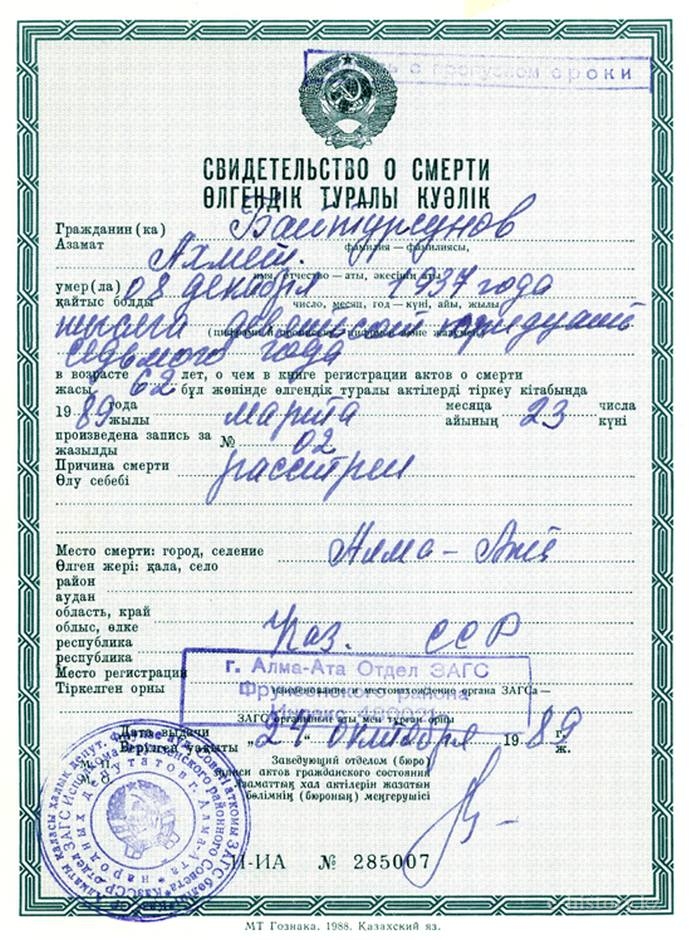 с пропуском сроки
СВИДЕТЕЛЬСТВО О СМЕРТИ
ӨЛГЕНДІК ТУРАЛЫ КУӘЛІК
Гражданин(ка) Байтурсунов
Азамат фамилия — фамилиясы,
Ахмет.
имя, отчество — аты, әкесінің аты
умер(ла) 08 декабря 1937 года
қайтыс болды число, месяц, год — күні, айы, жылы
тысяча девятьсот тридцать
(цифрами и прописью — цифрмен және жазумен)
седьмого года
в возрасте 62 лет, о чем в книге регистрации актов о смерти
жасы бұл жөнінде өлгендік туралы актілерді тіркеу кітабында
19 89 года марта месяца 23 числа
жылы айының күні
произведена запись за № 02
жазылды
Причина смерти расстрел
Өлу себебі
Место смерти: город, селение Алма-Ата
Өлген жері: қала, село
район
аудан
область, край
облыс, өлке Каз. ССР
республика
республика
Место регистрации
Тіркелген орны наименование и местонахождение органа ЗАГСа —
г. Алма-Ата Отдел ЗАГС
Фрунзенского района
Индекс
ЗАГС органының аты мен тұрған орны
Дата выдачи „24“ октября 19 89 г.
Берілген уақыты ж.
Заведующий отделом (бюро)
записи актов гражданского состояния
Азаматтық хал актілерін жазатын
бөлімнің (бюроның) меңгерушісі
II-ИА № 285007
МТ Гознака. 1988. Казахский яз.